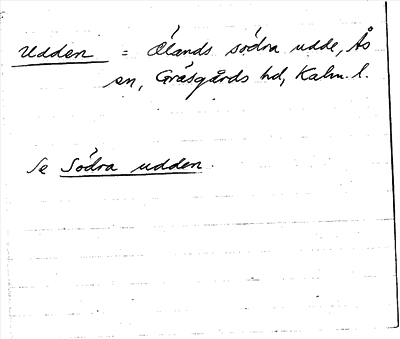 Udden = Ölands södra udde, Ås
sn, Gräsgårds hd, Kalm. l.
Se Södra udden.